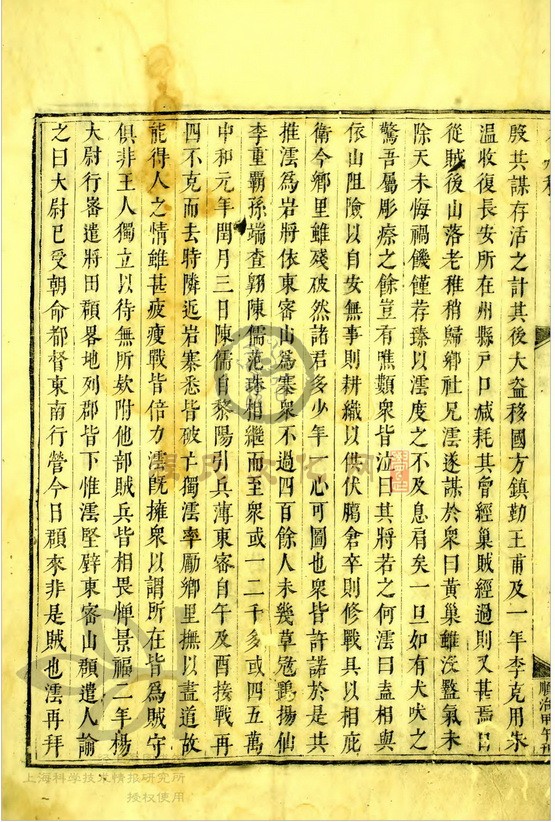 殷共謀存活之計其後大盜移國方鎮勤王甫及一年李克用朱
溫收復長安所在州縣戸口減耗其曾經巢賊經過則又甚焉日
從賊後山落老稚稍稍歸鄉社兄澐遂謀於衆曰黃巢雖沒盭氣未
除天未悔禍饑饉荐臻以澐度之不及息肩矣一旦如有犬吠之
驚吾屬彫瘵之餘豈有噍類衆皆泣曰其將若之何澐曰盍相與
依山阻險以自安無事則耕織以供伏臈倉卒則修戰具以相庇
衛今鄉里雖殘破然諸君多少年一心可圖也衆皆許諾於是共
推澐爲岩將依東審山爲寨衆不過四百餘人未幾草冦鸛揚仙
李重霸孫端查翺陳儒范珠相繼而至衆或一二千多或四五萬
中和元年閏月三日陳儒自黎陽引兵薄東審自午及酉接戰再
四不克而去時隣近岩寨悉皆破亡獨澐率勵鄉里撫以晝道故
能得人之情雖甚疲瘦戰皆倍力澐旣擁衆以謂所在皆爲賊守
俱非王人獨立以待無所欵附他部賊兵皆相畏憚景福二年楊
大尉行審遣將田頵畧地列郡皆下惟澐堅壁東審山頵遣人諭
之曰大尉已受朝命都督東南行營今日頵來非是賊也澐再拜
順治甲午刊
上海科学技术情报研究所
授权使用